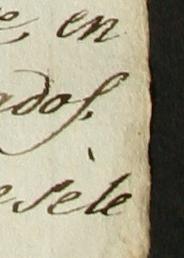 e, en
ados,
e sele